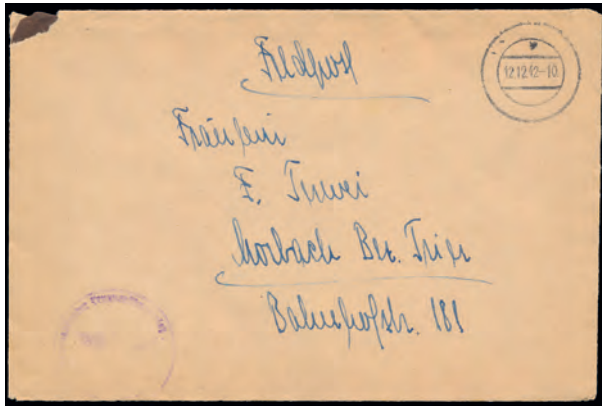 Feldpost
12.12.42-10
Fräulein
F.
Morbach Bez. Trier
Bahnhofstr. 181